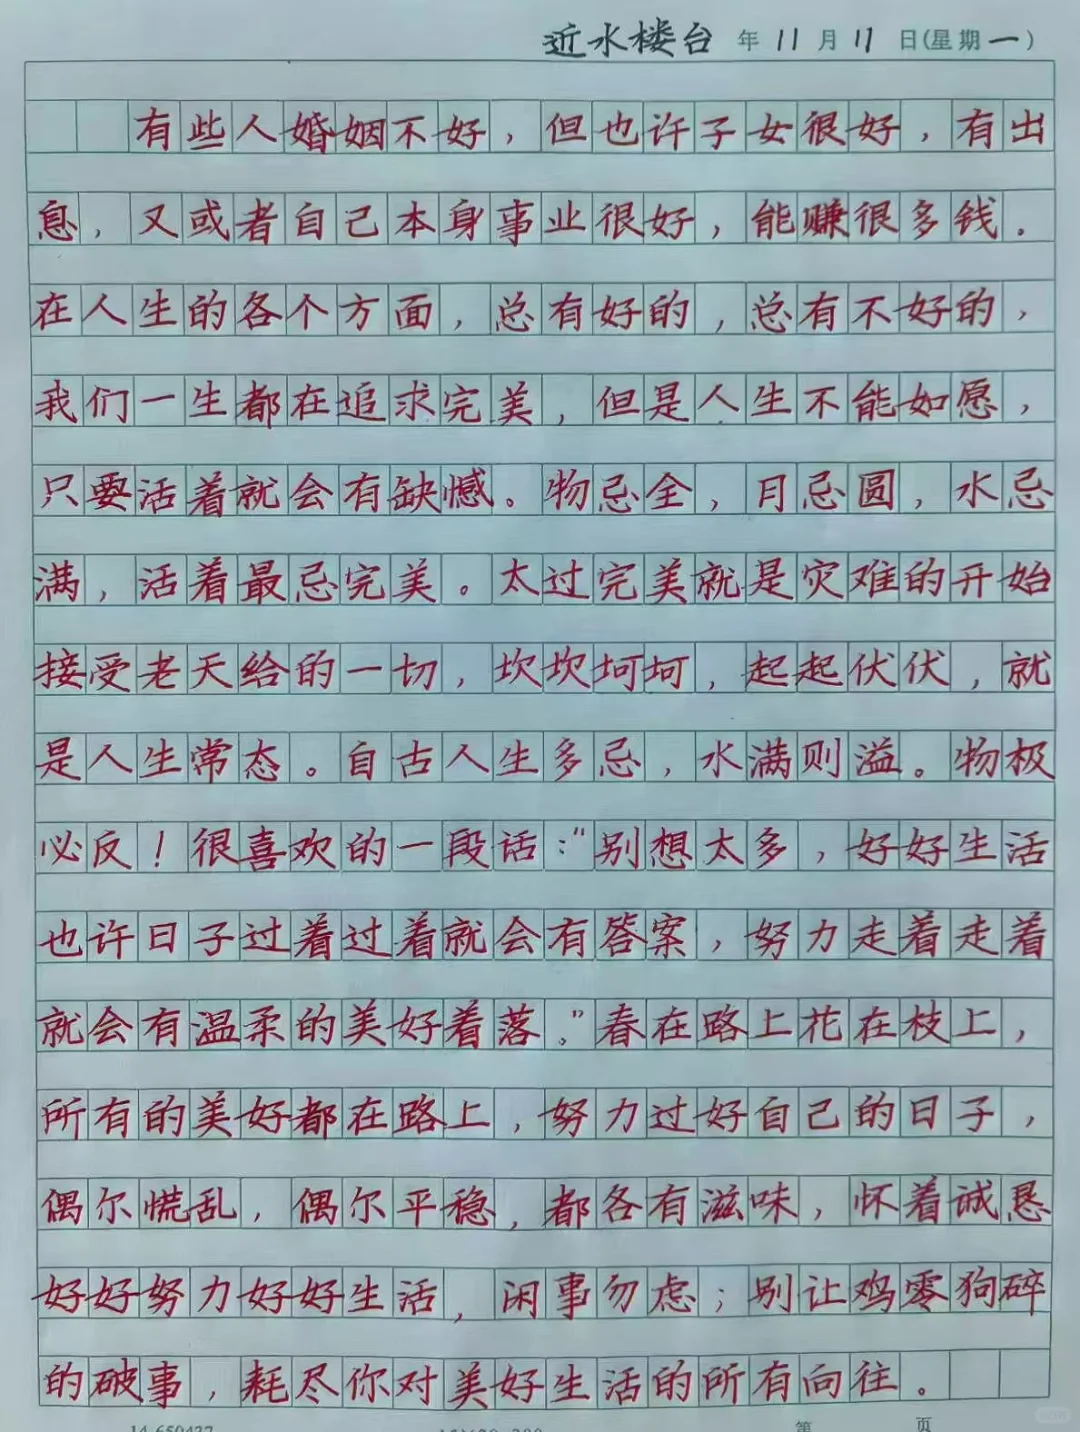 近水楼台 年 11 月 11 日(星期一)
有些人婚姻不好，但也许子女很好，有出
息，又或者自己本身事业很好，能赚很多钱.
在人生的各个方面，总有好的，总有不好的，
我们一生都在追求完美，但是人生不能如愿，
只要活着就会有缺憾。物忌全，月忌圆，水忌
满，活着最忌完美。太过完美就是灾难的开始
接受老天给的一切，坎坎坷坷，起起伏伏，就
是人生常态。自古人生多忌，水满则溢。物极
必反！很喜欢的一段话："别想太多，好好生活
也许日子过着过着就会有答案，努力走着走着
就会有温柔的美好着落。"春在路上花在枝上，
所有的美好都在路上，努力过好自己的日子，
偶尔慌乱，偶尔平稳，都各有滋味，怀着诚恳
好好努力好好生活，闲事勿虑；别让鸡零狗碎
的破事，耗尽你对美好生活的所有向往。
第 页